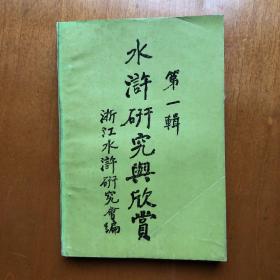 第一輯
水滸研究與欣赏
浙江水滸研究會編